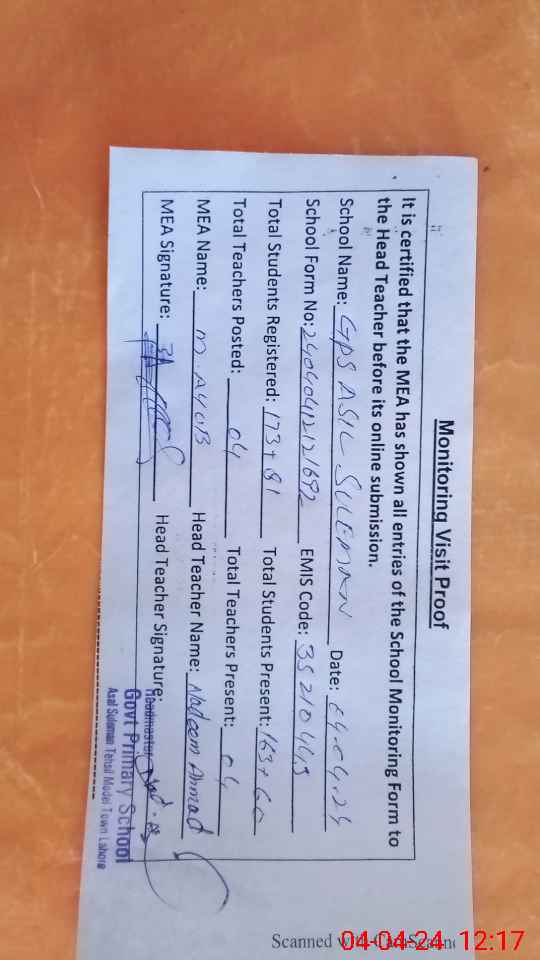 Monitoring Visit Proof
It is certified that the MEA has shown all entries of the School Monitoring Form to
the Head Teacher before its online submission.
School Name: GPS ASIL SULEMAN Date: 04.04.24
School Form No: 24040412121692 EMIS Code: 35210445
Total Students Registered: 173+81 Total Students Present: 163+60
Total Teachers Posted: 04 Total Teachers Present: 04
MEA Name: M. AYUB Head Teacher Name: Nadeem Ahmad
MEA Signature: Head Teacher Signature:
Headmaster
Govt Primary School
Asal Suleman Tehsil Model Town Lahore
Scanned with CamScanner
04-04-24 12:17